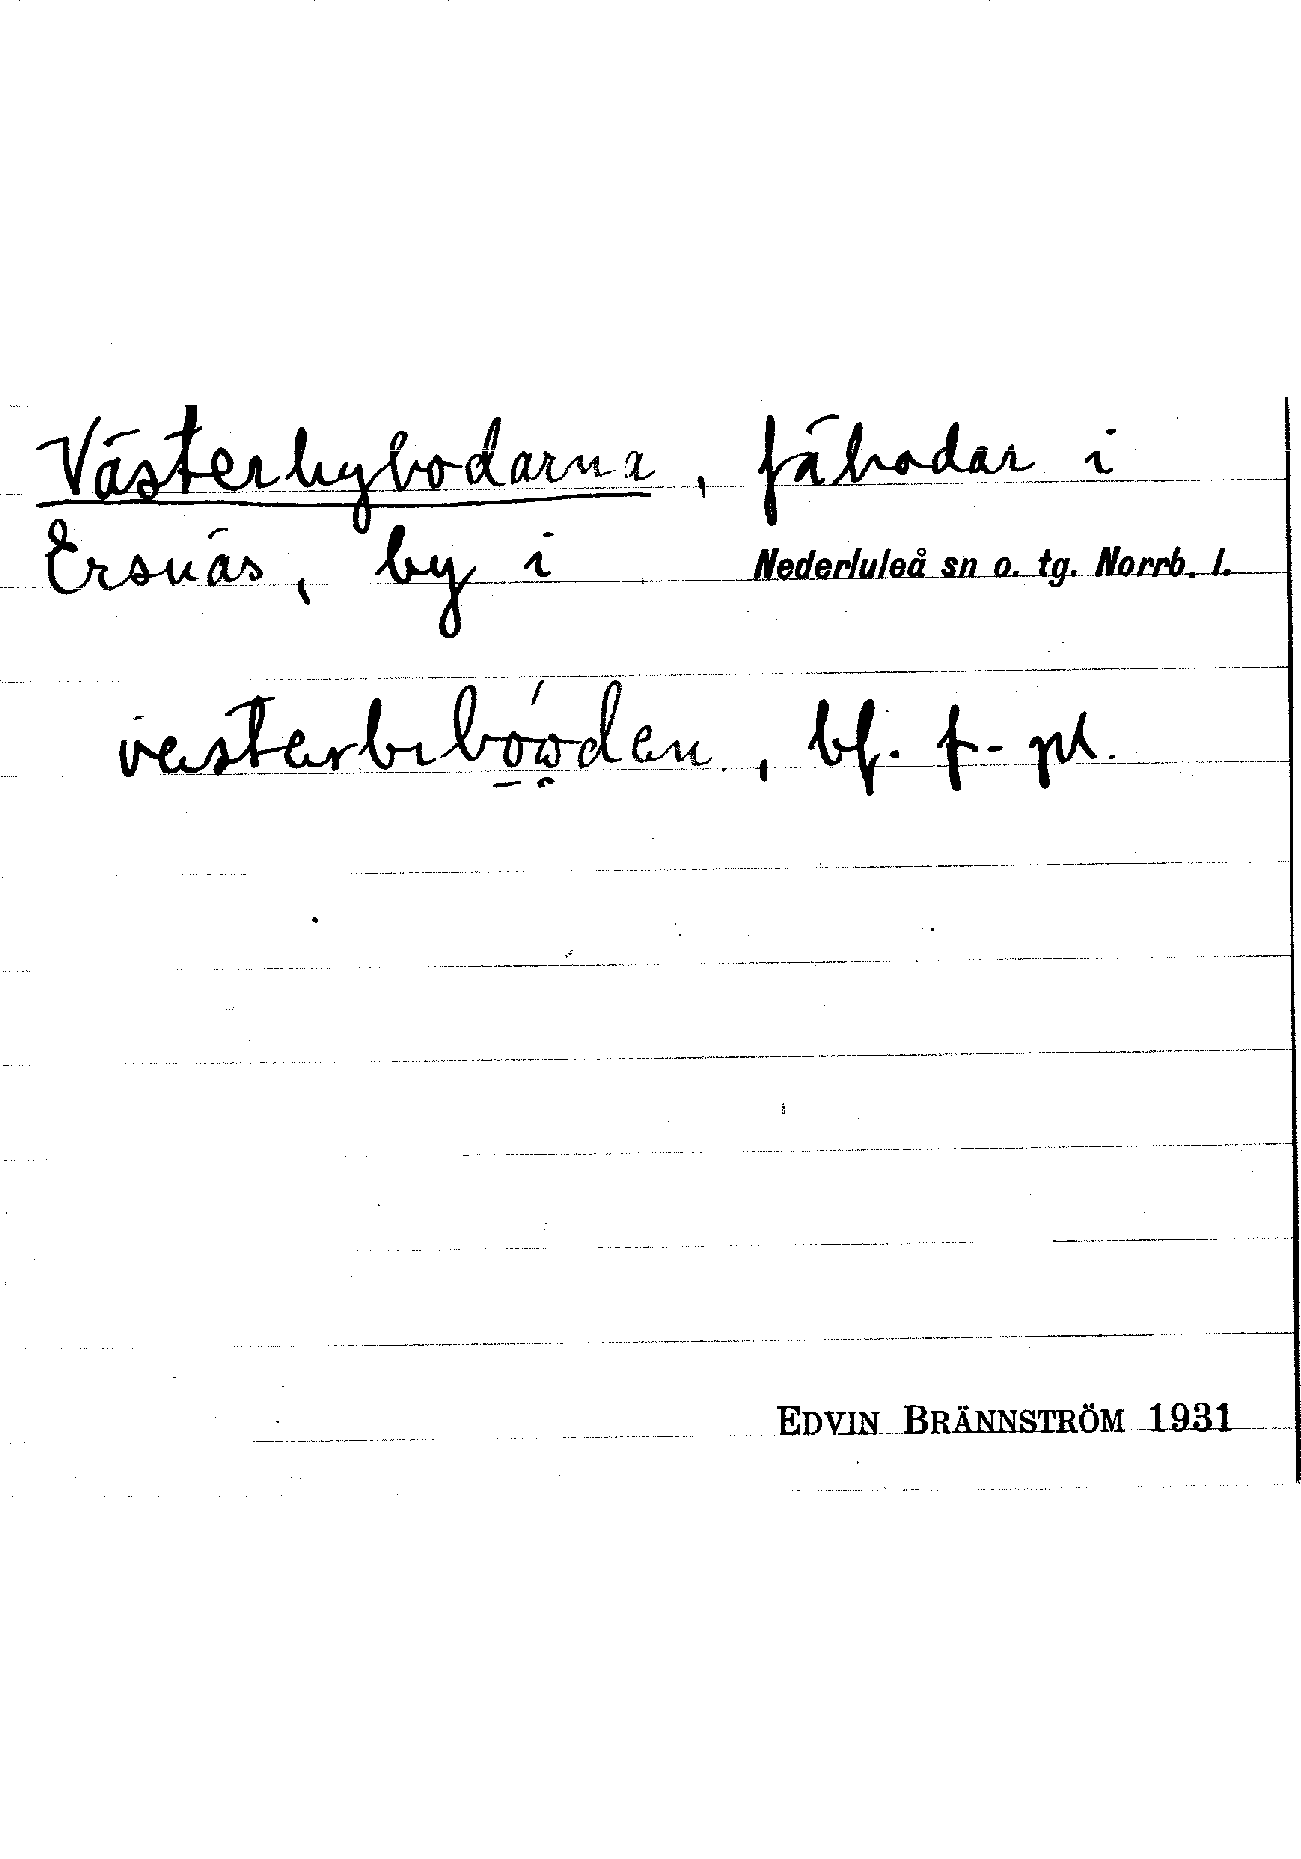 Västerbybodarna, fäbodar i
Ersnäs, by i Nederluleå sn o. tg. Norrb. l.
vesterbibówden, bf. f. pl.
EDVIN BRÄNNSTRÖM 1931